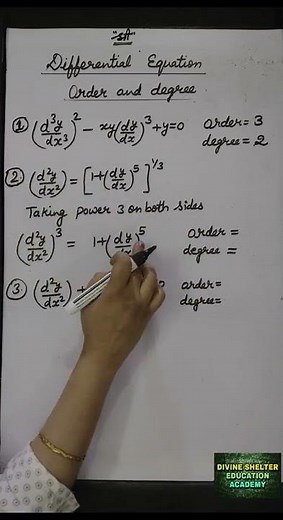 "श्री"
Differential Equation
Order and degree
① (d³y/dx³)² - xy(dy/dx)³ + y = 0 order = 3
degree = 2
② (d²y/dx²) = [1+(dy/dx)⁵]^1/3
Taking power 3 on both sides
(d²y/dx²)³ = 1+(dy/dx)⁵ order =
degree =
③ (d²y/dx²) + order =
degree =
DIVINE SHELTER
EDUCATION
ACADEMY